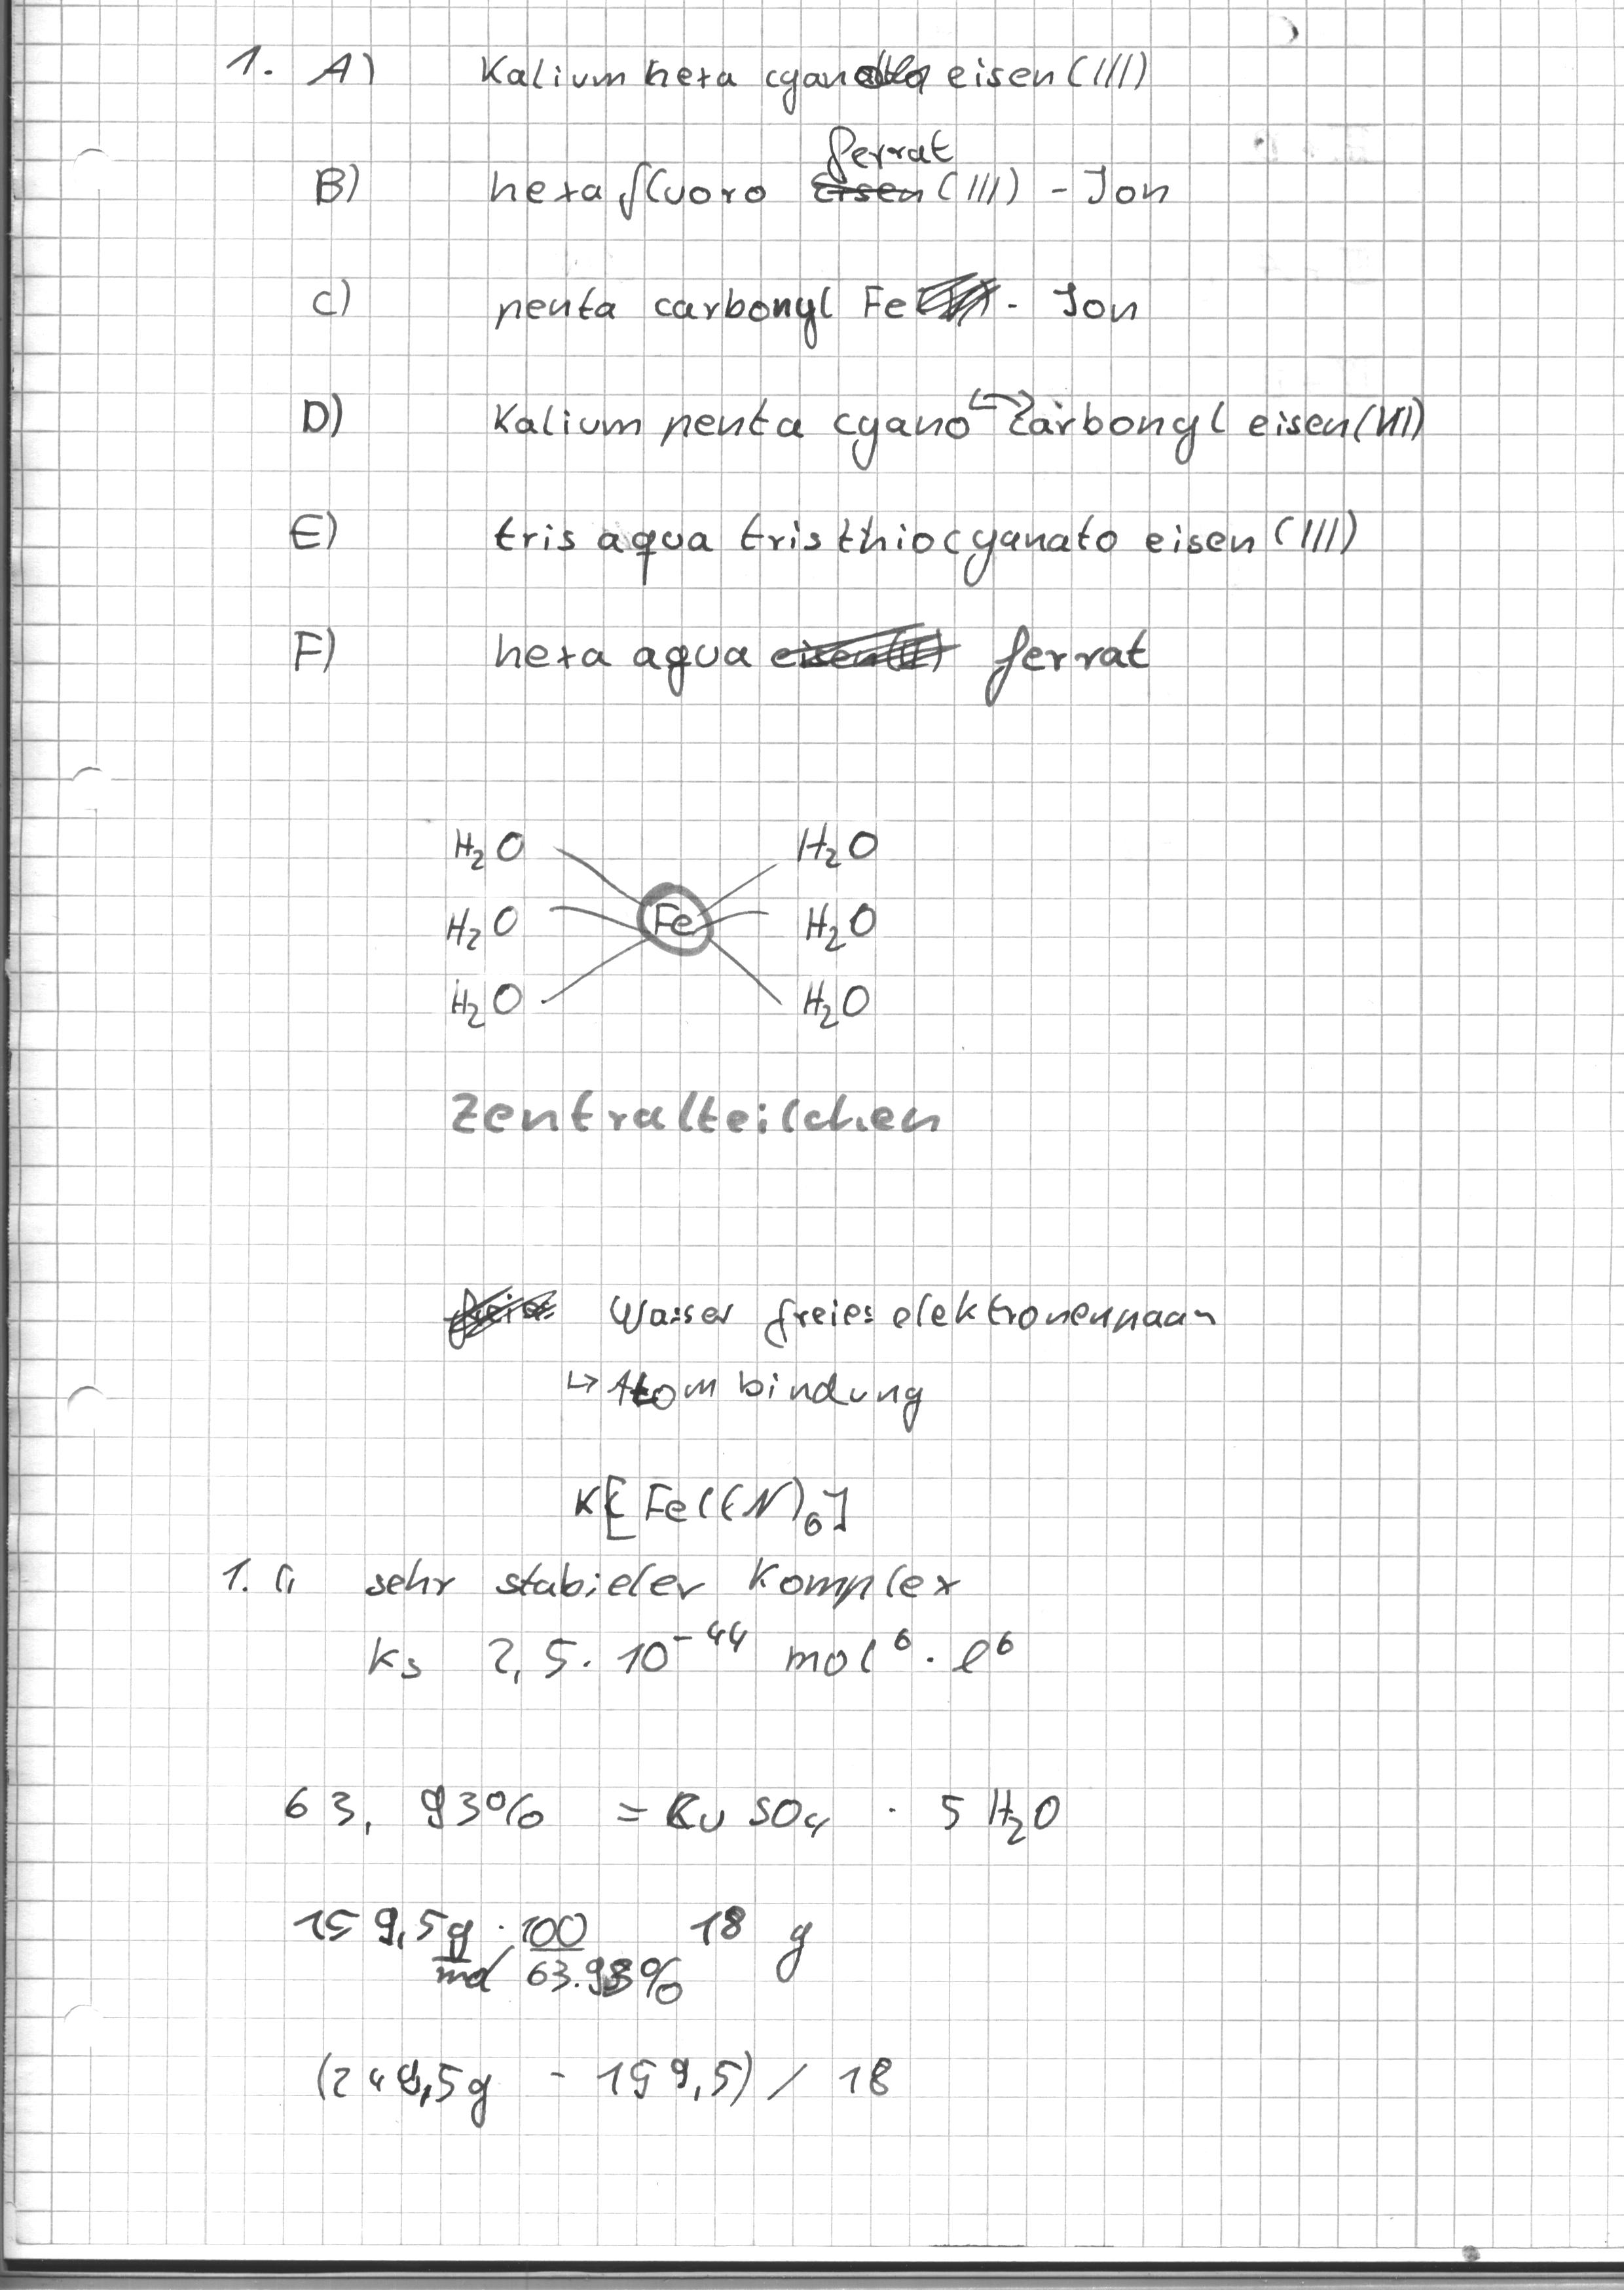 1. A) Kalium hexa cyano eisen (III)
ferrat
B) hexa fluoro Eisen (III) - Jon
C) penta carbonyl Fe - Jon
D) Kalium penta cyano carbonyl eisen (III)
E) tris aqua tris thiocyanato eisen (III)
F) hexa aqua eisen(II) ferrat
H₂O H₂O
H₂O Fe H₂O
H₂O H₂O
Zentralteilchen
freies Wasser freies elektronenpaar
↳ Atom bindung
K[Fe(CN)₆]
1. sehr stabieler Komplex
Ks 2,5 · 10⁻⁴⁴ mol⁶ · l⁶
63,93% = CuSO₄ · 5 H₂O
159,5g · 100 18 g
mol 63.93%
(249,5g - 159,5) / 18